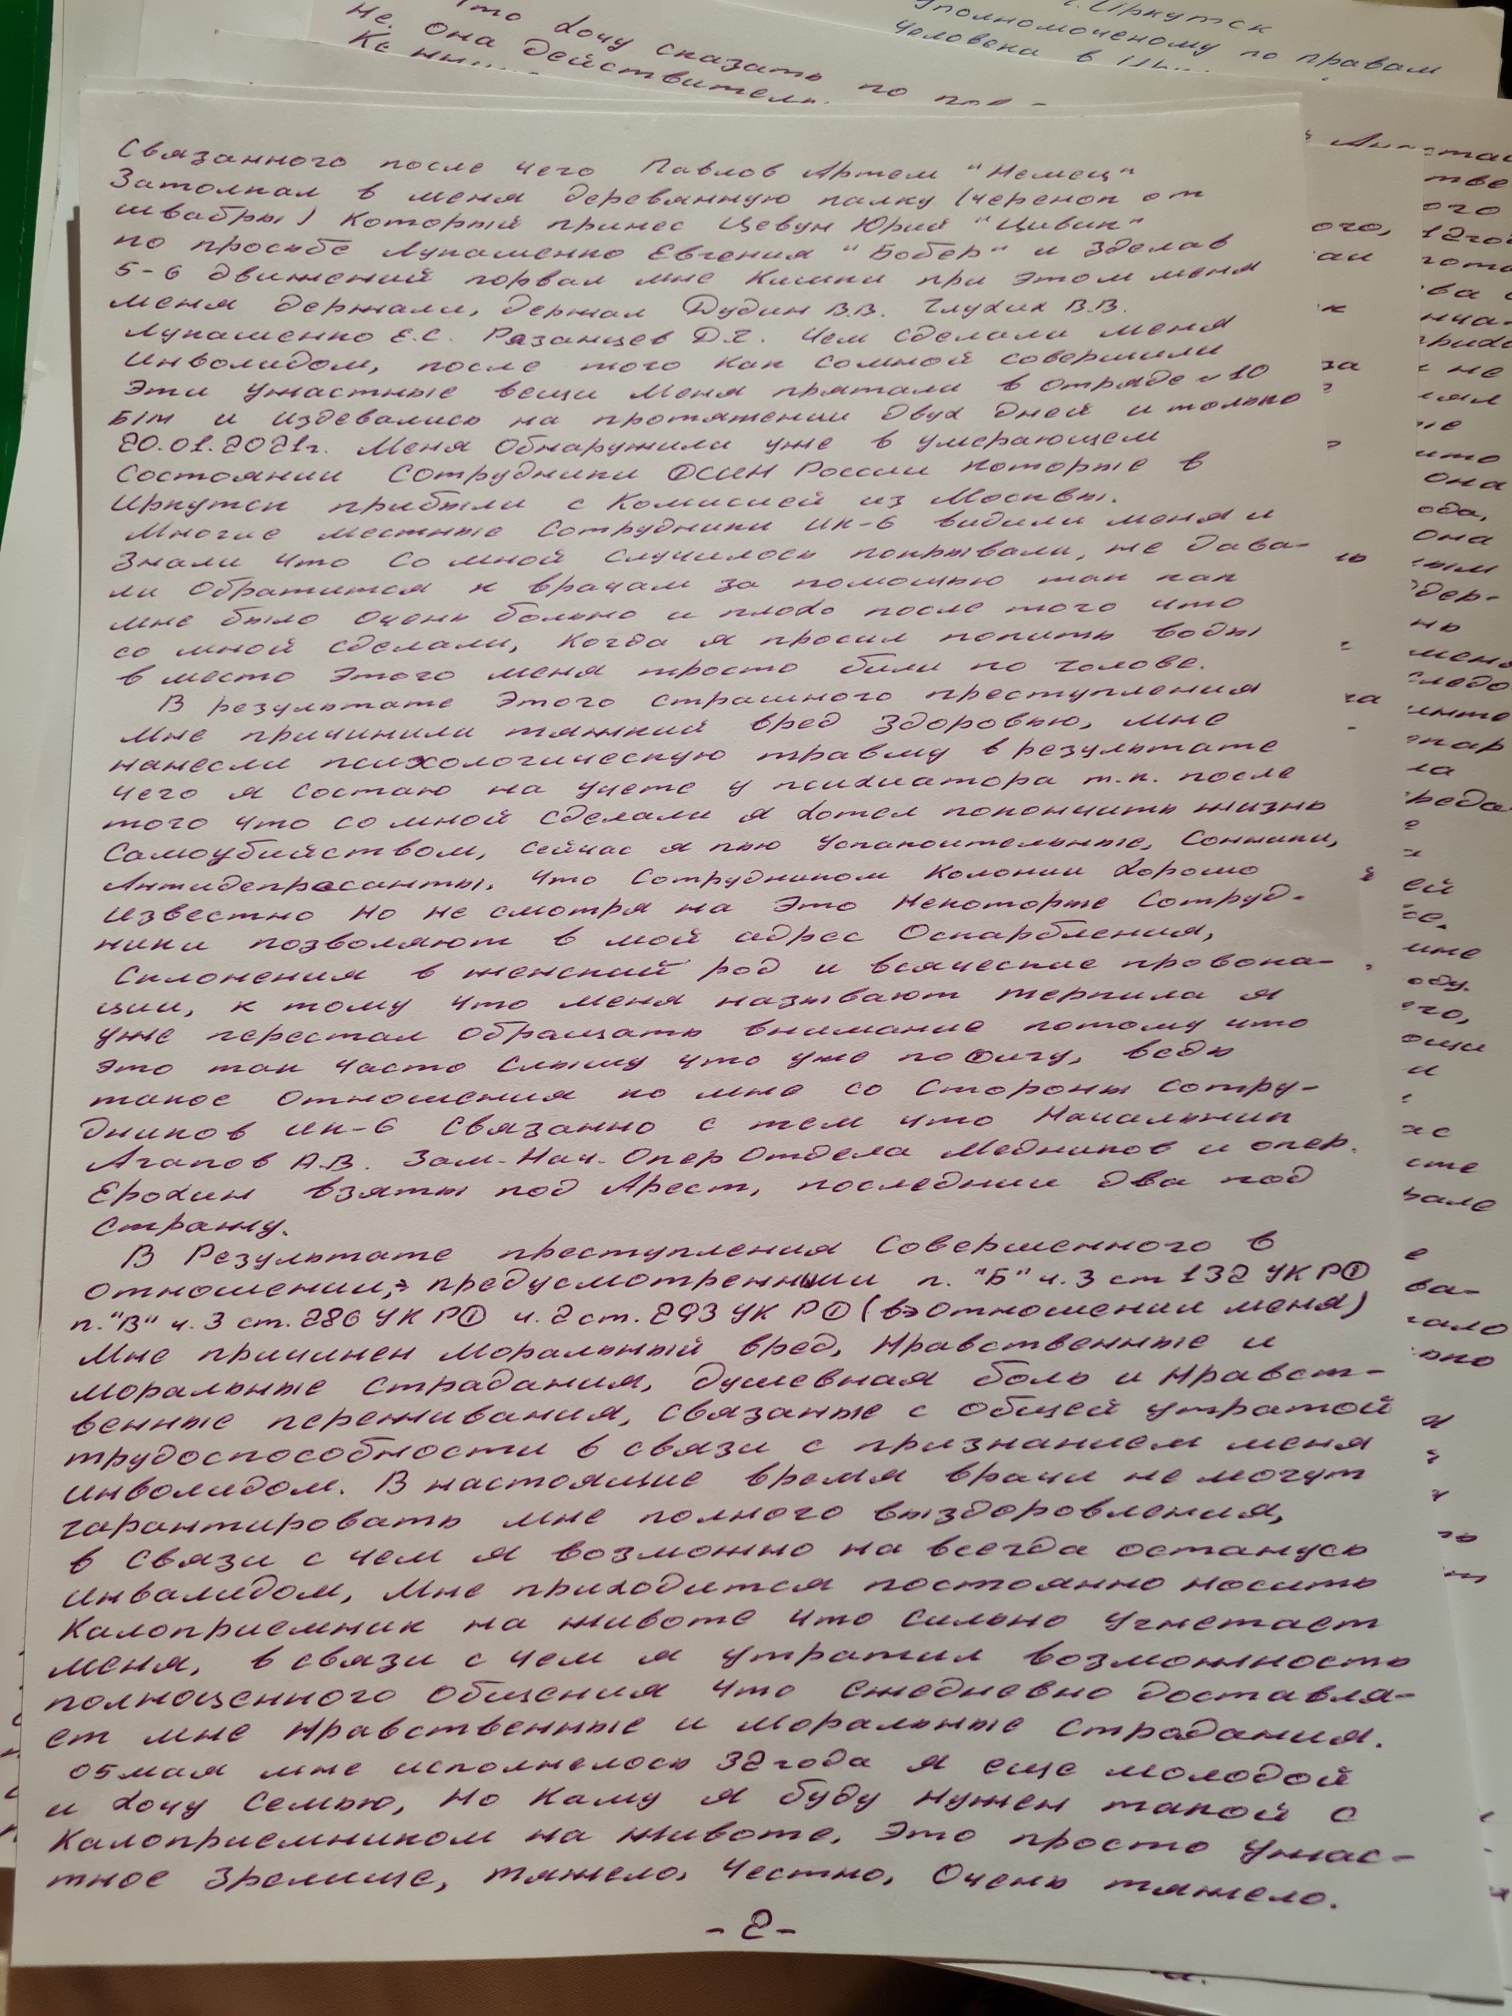 что хочу сказать по
Не. Она действительн
г. Иркутск
уполномоченому по правам
человека в
Связанного после чего Павлов Артем "Немец"
Затолкал в меня деревянную палку (черенок от
швабры) который принес Цевун Юрий "Цивик"
по просьбе Лукашенко Евгения "Бобер" и Зделав
5-6 движений порвал мне Кишки при этом меня
меня держали, держал Дудин В.В. Глухих В.В.
Лукашенко Е.С. Рязанцев Д.Г. Чем Сделали меня
Инволидом, после того как сомной совершили
Эти Ужастные вещи Меня прятали в отряде №10
Б/М и издевались на протяжении двух дней и только
20.01.2021г. Меня Обнаружили уже в умерающем
состоянии Сотрудники ФСИН России которые в
Иркутск прибыли с Комисией из Москвы.
Многие местные Сотрудники ИК-6 видили меня и
Знали что со мной случилось покрывали, не дава-
ли Обратится к врачам за помощью так как
мне было очень больно и плохо после того что
со мной сделали, когда я просил попить воды
в место Этого меня просто били по голове.
В результате Этого страшного преступления
Мне причинили тяжкий вред здоровью, мне
нанесли психологическую травму в результате
чего я состаю на учете у психиатора т.к. после
того что со мной сделали я хотел покончить жизнь
Самоубийством, сейчас я пью Успакоительные, Сонники,
Антидепресанты, что Сотрудником Колонии хорошо
Известно но не смотря на это Некоторые Сотруд-
ники позволяют в мой адрес Оскарбления,
Склонения в женский род и всяческие провока-
ции, к тому что меня называют терпила я
уже перестал обращать внимание потому что
это так часто слышу что уже пофигу, ведь
такое отношения ко мне со стороны сотру-
дников ИК-6 связанно с тем что Начальник
Агапов А.В. Зам-Нач-Опер Отдела Медников и опер.
Ерохин взяты под Арест, последнии два под
стражу.
В Результате преступления Совершенного в
отношении, предусмотренныии п. "Б" ч. 3 ст 132 УК РФ
п. "В" ч. 3 ст. 286 УК РФ ч. 2 ст. 293 УК РФ (в отношении меня)
Мне причинен Моральный вред, Нравственные и
моральные страдания, душевная боль и Нравст-
венные переживания, связаные с общей утратой
трудоспособности в связи с признанием меня
инволидом. В настоящие время врачи не могут
гарантировать мне полного выздоровления,
в связи с чем я возможно на всегда останусь
инвалидом, Мне приходится постоянно носить
Калоприемник на животе что сильно угнетает
меня, в связи с чем я утратил возможность
полноценного общения что ежедневно доставля-
ет мне Нравственные и моральные страдания.
05 мая мне исполнелось 32 года я еще молодой
и хочу семью, Но Каму я буду Нужен такой с
Калоприемником на животе, Это просто Ужас-
тное Зрелище, тяжело, Честно, Очень тяжело.
- 2 -